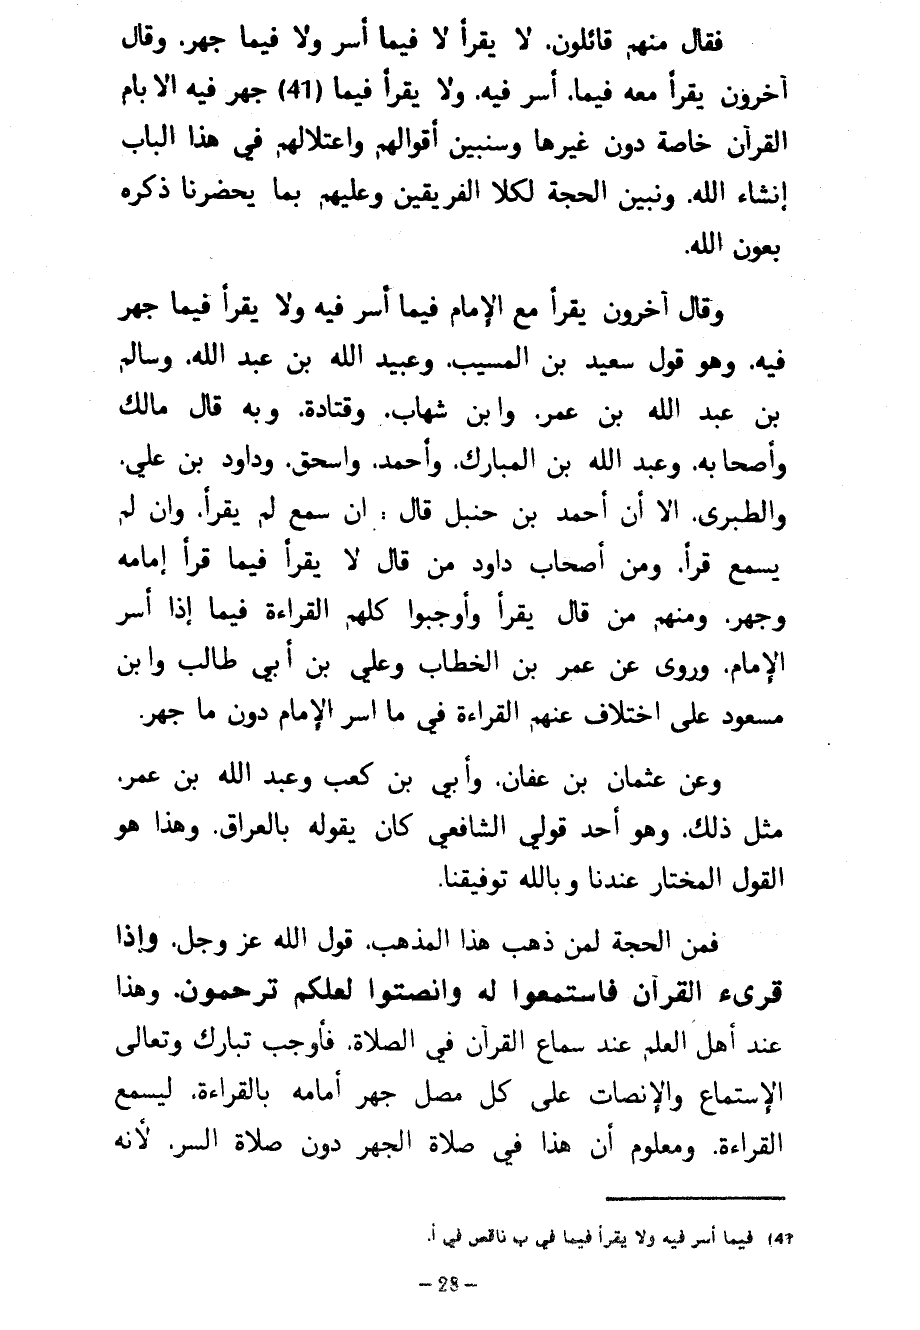 فقال منهم قائلون. لا يقرأ لا فيما أسر ولا فيما جهر. وقال
آخرون يقرأ معه فيما. أسر فيه. ولا يقرأ فيما (41) جهر فيه الا بام
القرآن خاصة دون غيرها وسنبين أقوالهم واعتلالهم في هذا الباب
إنشاء الله. ونبين الحجة لكلا الفريقين وعليهم بما يحضرنا ذكره
بعون الله.
وقال آخرون يقرأ مع الإمام فيما أسر فيه ولا يقرأ فيما جهر
فيه. وهو قول سعيد بن المسيب. وعبيد الله بن عبد الله. وسالم
بن عبد الله بن عمر. وابن شهاب. وقتادة. وبه قال مالك
وأصحابه. وعبد الله بن المبارك. وأحمد. واسحق. وداود بن علي.
والطبرى. الا أن أحمد بن حنبل قال : ان سمع لم يقرأ. وان لم
يسمع قرأ. ومن أصحاب داود من قال لا يقرأ فيما قرأ إمامه
وجهر. ومنهم من قال يقرأ وأوجبوا كلهم القراءة فيما إذا أسر
الإمام. وروى عن عمر بن الخطاب وعلي بن أبي طالب وابن
مسعود على اختلاف عنهم القراءة في ما اسر الإمام دون ما جهر.
وعن عثمان بن عفان. وأبي بن كعب وعبد الله بن عمر.
مثل ذلك. وهو أحد قولي الشافعي كان يقوله بالعراق. وهذا هو
القول المختار عندنا وبالله توفيقنا.
فمن الحجة لمن ذهب هذا المذهب. قول الله عز وجل. وإذا
قرىء القرآن فاستمعوا له وانصتوا لعلكم ترحمون. وهذا
عند أهل العلم عند سماع القرآن في الصلاة. فأوجب تبارك وتعالى
الإستماع والإنصات على كل مصل جهر أمامه بالقراءة. ليسمع
القراءة. ومعلوم أن هذا في صلاة الجهر دون صلاة السر. لأنه
41) فيما أسر فيه ولا يقرأ فيما في ب ناقص في أ.
– 28 –